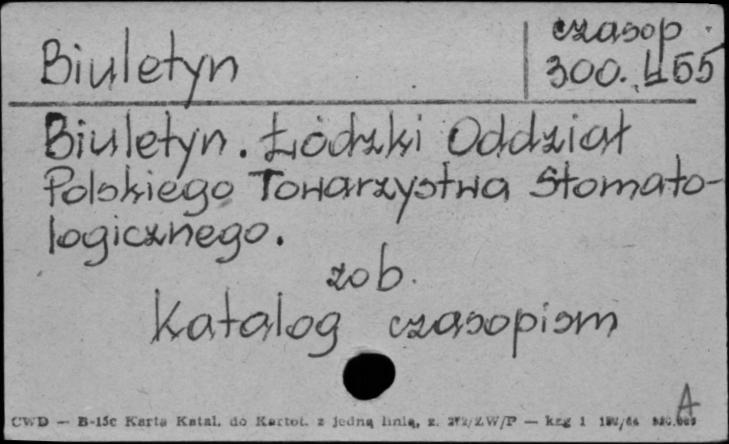 Biuletyn
czasop.
300.455
Biuletyn. Łódzki Oddział
Polskiego Towarzystwa Stomato-
logicznego.
zob.
Katalog czasopism
A
CWD — B-15c Karta Katal. do Kartot. z jedną linią, z. 272/ZW/P — kzg 1